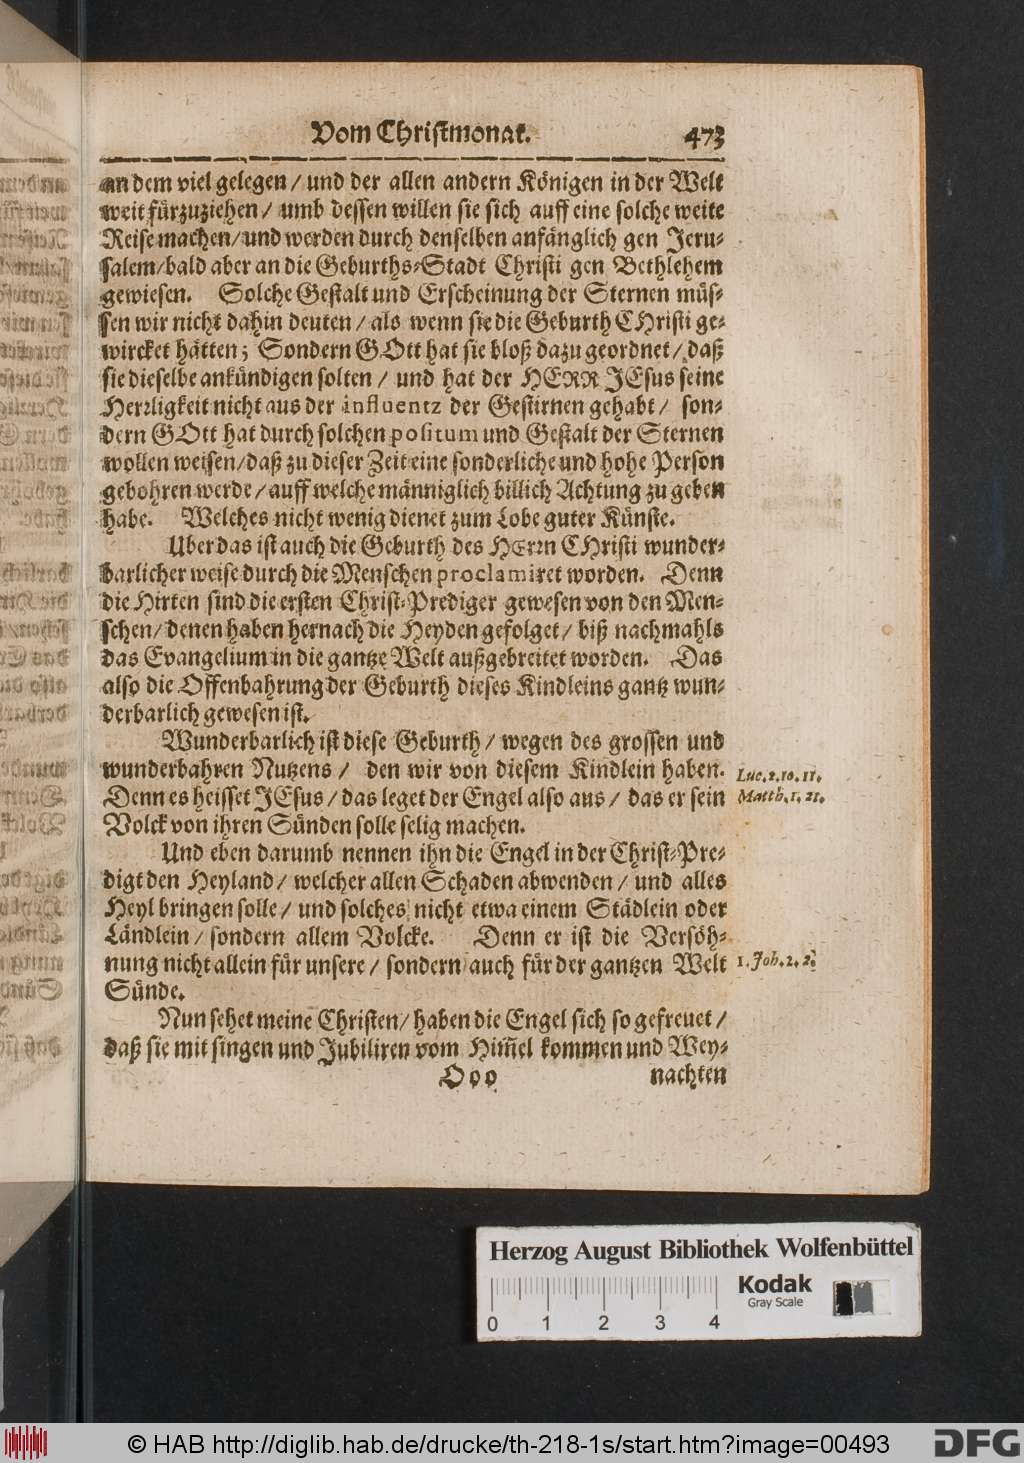 Vom Christmonat. 473
an dem viel gelegen / und der allen andern Königen in der Welt
weit fürzuziehen / umb dessen willen sie sich auff eine solche weite
Reise machen / und werden durch denselben anfänglich gen Jeru-
salem / bald aber an die Geburths-Stadt Christi gen Bethlehem
gewiesen. Solche Gestalt und Erscheinung der Sternen müs-
sen wir nicht dahin deuten / als wenn sie die Geburth CHristi ge-
wircket hätten; Sondern GOtt hat sie bloß dazu geordnet / daß
sie dieselbe ankündigen solten / und hat der HERR JEsus seine
Herrligkeit nicht aus der influentz der Gestirnen gehabt / son-
dern GOtt hat durch solchen positum und Gestalt der Sternen
wollen weisen / daß zu dieser Zeit eine sonderliche und hohe Person
gebohren werde / auff welche männiglich billich Achtung zu geben
habe. Welches nicht wenig dienet zum Lobe guter Künste.
Uber das ist auch die Geburth des HErrn CHristi wunder-
barlicher weise durch die Menschen proclamiret worden. Denn
die Hirten sind die ersten Christ-Prediger gewesen von den Men-
schen / denen haben hernach die Heyden gefolget / biß nachmahls
das Evangelium in die gantze Welt außgebreitet worden. Das
also die Offenbahrung der Geburth dieses Kindleins gantz wun-
derbarlich gewesen ist.
Wunderbarlich ist diese Geburth / wegen des grossen und
wunderbahren Nutzens / den wir von diesem Kindlein haben.
Luc. 2. 10. 11.
Denn es heisset JEsus / das leget der Engel also aus / das er sein
Matth. 1. 21.
Volck von ihren Sünden solle selig machen.
Und eben darumb nennen ihn die Engel in der Christ-Pre-
digt den Heyland / welcher allen Schaden abwenden / und alles
Heyl bringen solle / und solches nicht etwa einem Städlein oder
Ländlein / sondern allem Volcke. Denn er ist die Versöh-
nung nicht allein für unsere / sondern auch für der gantzen Welt
1. Joh. 2. 2.
Sünde.
Nun sehet meine Christen / haben die Engel sich so gefreuet /
daß sie mit singen und Jubiliren vom Him̄el kommen und Wey-
Ooo nachten
Herzog August Bibliothek Wolfenbüttel
Kodak
Gray Scale
0 1 2 3 4
© HAB http://diglib.hab.de/drucke/th-218-1s/start.htm?image=00493
DFG